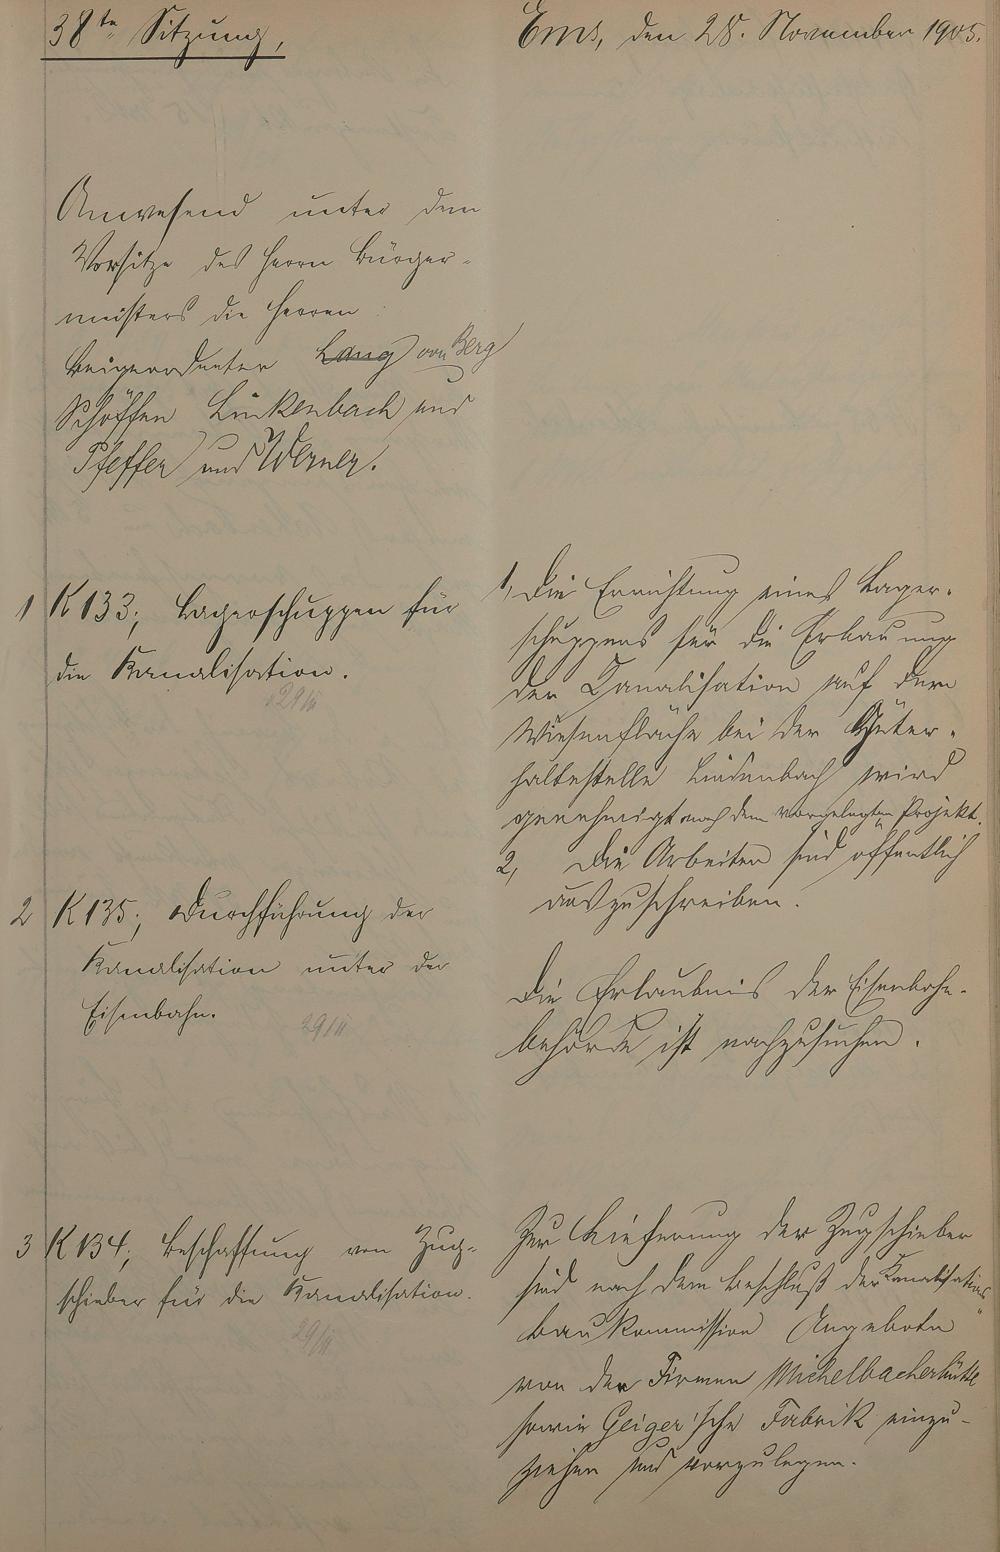 38te Sitzung,
Ems, den 28. November 1905.
Anwesend unter dem
Vorsitze des Herrn Bürger-
meisters die Herren
Beigeordneter Lang von Berg
Schöffen Linkenbach und
Pfeffer und Werner.
1 K 133; Lagerschuppen für
die Kanalisation.
29/11
1, Die Errichtung eines Lager-
schuppens für die Erbauung
der Kanalisation auf dem
Wiesenfläche bei der Güter-
haltestelle Lindenbach wird
genehmigt nach dem vorgelegten Projekt.
2, Die Arbeiten sind öffentlich
auszuschreiben.
2 K 135; Durchführung der
Kanalisation unter der
Eisenbahn.
29/11
Die Erlaubnis der Eisenbahn-
behörde ist nachzusuchen.
3 K 134; Beschaffung von Zug-
schieber für die Kanalisation.
29/11
Zur Lieferung der Zugschieber
sind nach dem Beschluß der Kanalisations-
baukommission Angebote
von den Firmen Michelbacherhütte
sowie Geiger'sche Fabrik einzu-
ziehen und vorzulegen.